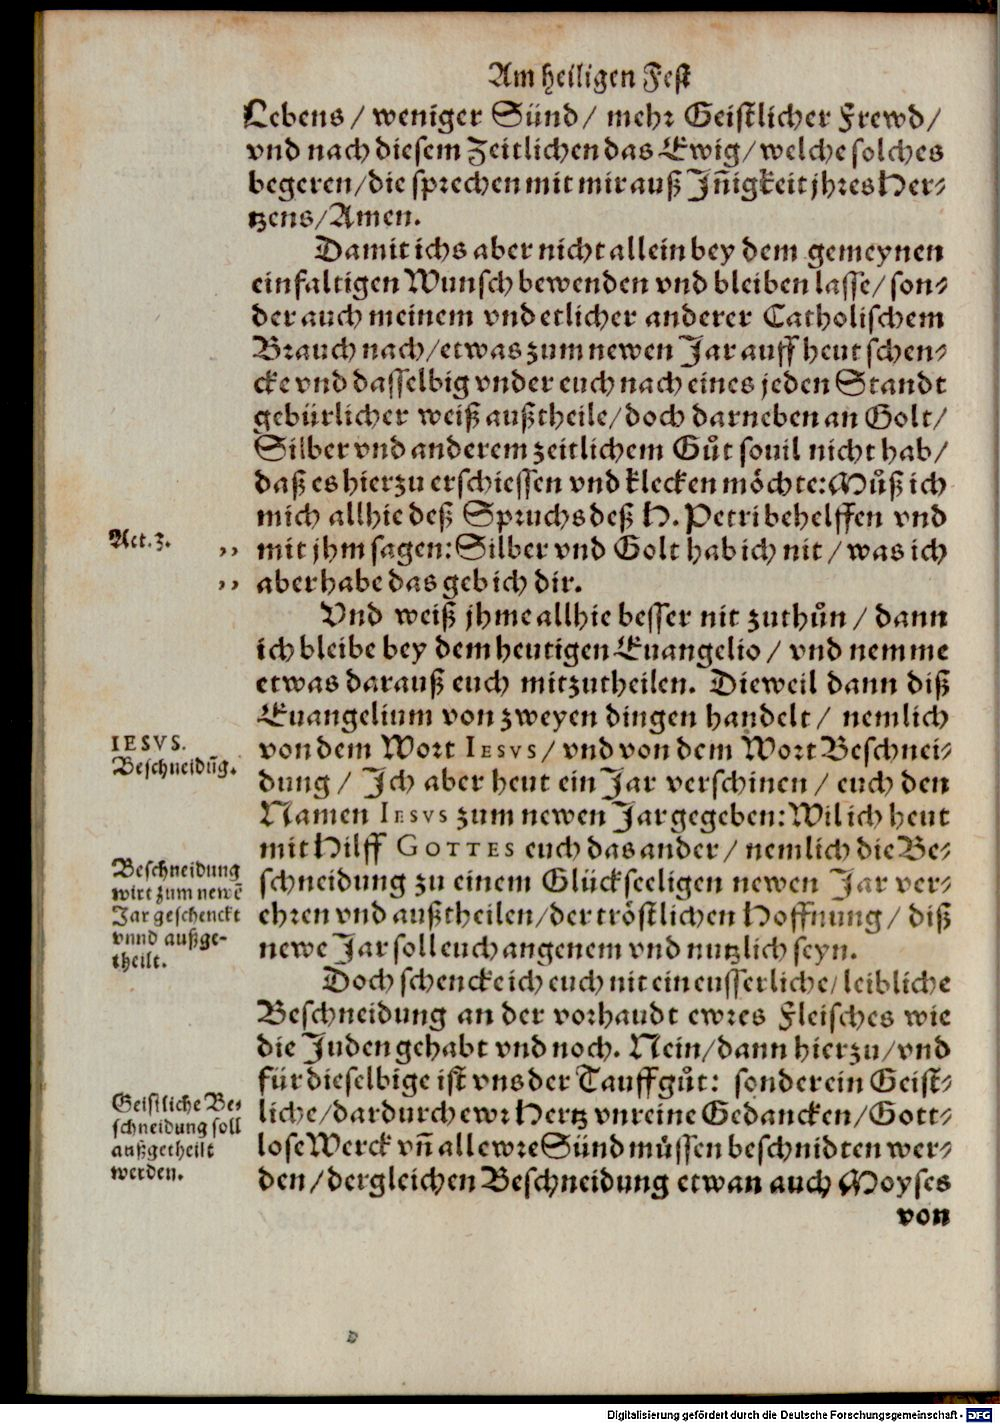 Am heiligen Fest
Lebens / weniger Sünd / mehr Geistlicher Frewd /
vnd nach diesem Zeitlichen das Ewig / welche solches
begeren / die sprechen mit mir auß Jñigkeit jhres Her⸗
tzens / Amen.
Damit ichs aber nicht allein bey dem gemeynen
einfaltigen Wunsch bewenden vnd bleiben lasse / son⸗
der auch meinem vnd etlicher anderer Catholischem
Brauch nach / etwas zum newen Jar auff heut schen⸗
cke vnd dasselbig vnder euch nach eines jeden Standt
gebürlicher weiß außtheile / doch darneben an Golt /
Silber vnd anderem zeitlichem Gůt souil nicht hab /
daß es hierzu erschiessen vnd klecken möchte: Můß ich
mich allhie deß Spruchs deß H. Petri behelffen vnd
Act. 3.
,, mit jhm sagen: Silber vnd Golt hab ich nit / was ich
,, aber habe das geb ich dir.
Vnd weiß jhme allhie besser nit zuthůn / dann
ich bleibe bey dem heutigen Euangelio / vnd nemme
etwas darauß euch mitzutheilen. Dieweil dann diß
Euangelium von zweyen dingen handelt / nemlich
IESVS.
Beschneidūg.
von dem Wort IESVS / vnd von dem Wort Beschnei⸗
dung / Jch aber heut ein Jar verschinen / euch den
Namen IESVS zum newen Jar gegeben: Wil ich heut
mit Hilff GOTTES euch das ander / nemlich die Be⸗
Beschneidung
wirt zum newē
Jar geschenckt
vnnd außge-
theilt.
schneidung zu einem Glückseeligen newen Jar ver⸗
ehren vnd außtheilen / der tröstlichen Hoffnung / diß
newe Jar soll euch angenem vnd nutzlich seyn.
Doch schencke ich euch nit ein eusserliche / leibliche
Beschneidung an der vorhaudt ewres Fleisches wie
die Juden gehabt vnd noch. Nein / dann hierzu / vnd
für dieselbige ist vns der Tauff gůt: sonder ein Geist⸗
Geistliche Be⸗
schneidung soll
außgetheilt
werden.
liche / dardurch ewr Hertz vnreine Gedancken / Gott⸗
lose Werck vñ all ewre Sünd můssen beschnidten wer⸗
den / dergleichen Beschneidung etwan auch Moyses
von
Digitalisierung gefördert durch die Deutsche Forschungsgemeinschaft - DFG